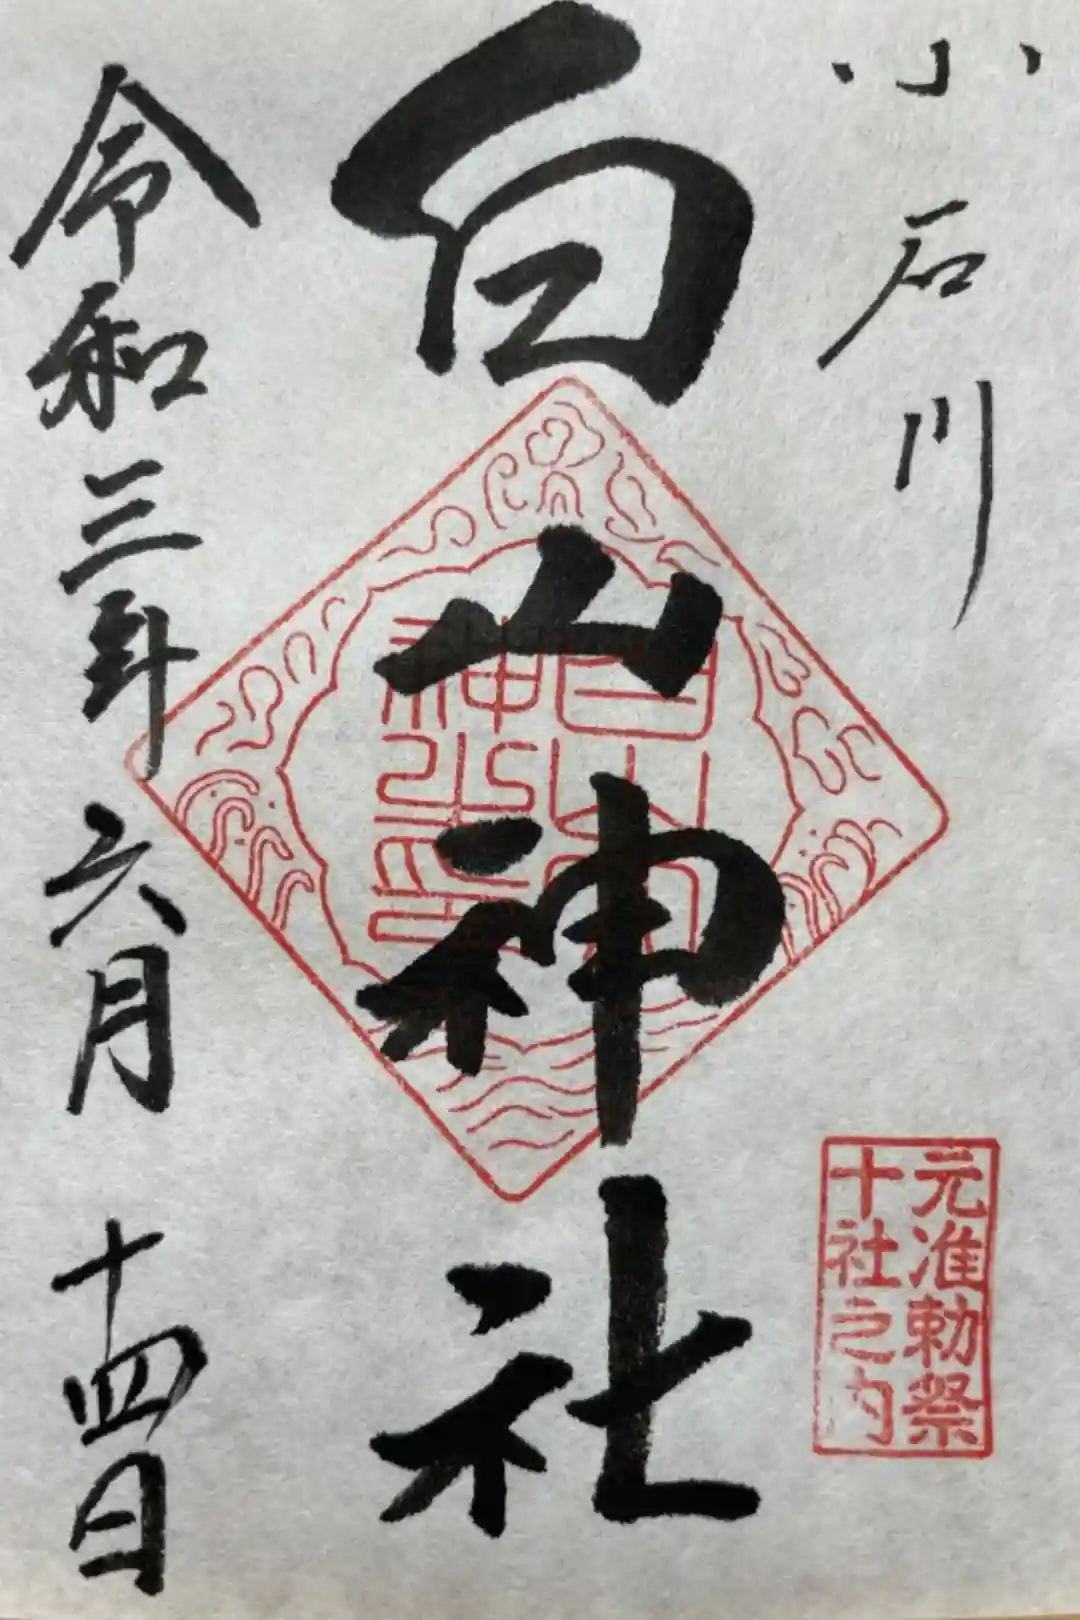 小石川
白山神社
令和三年六月十四日
元准勅祭
十社之内